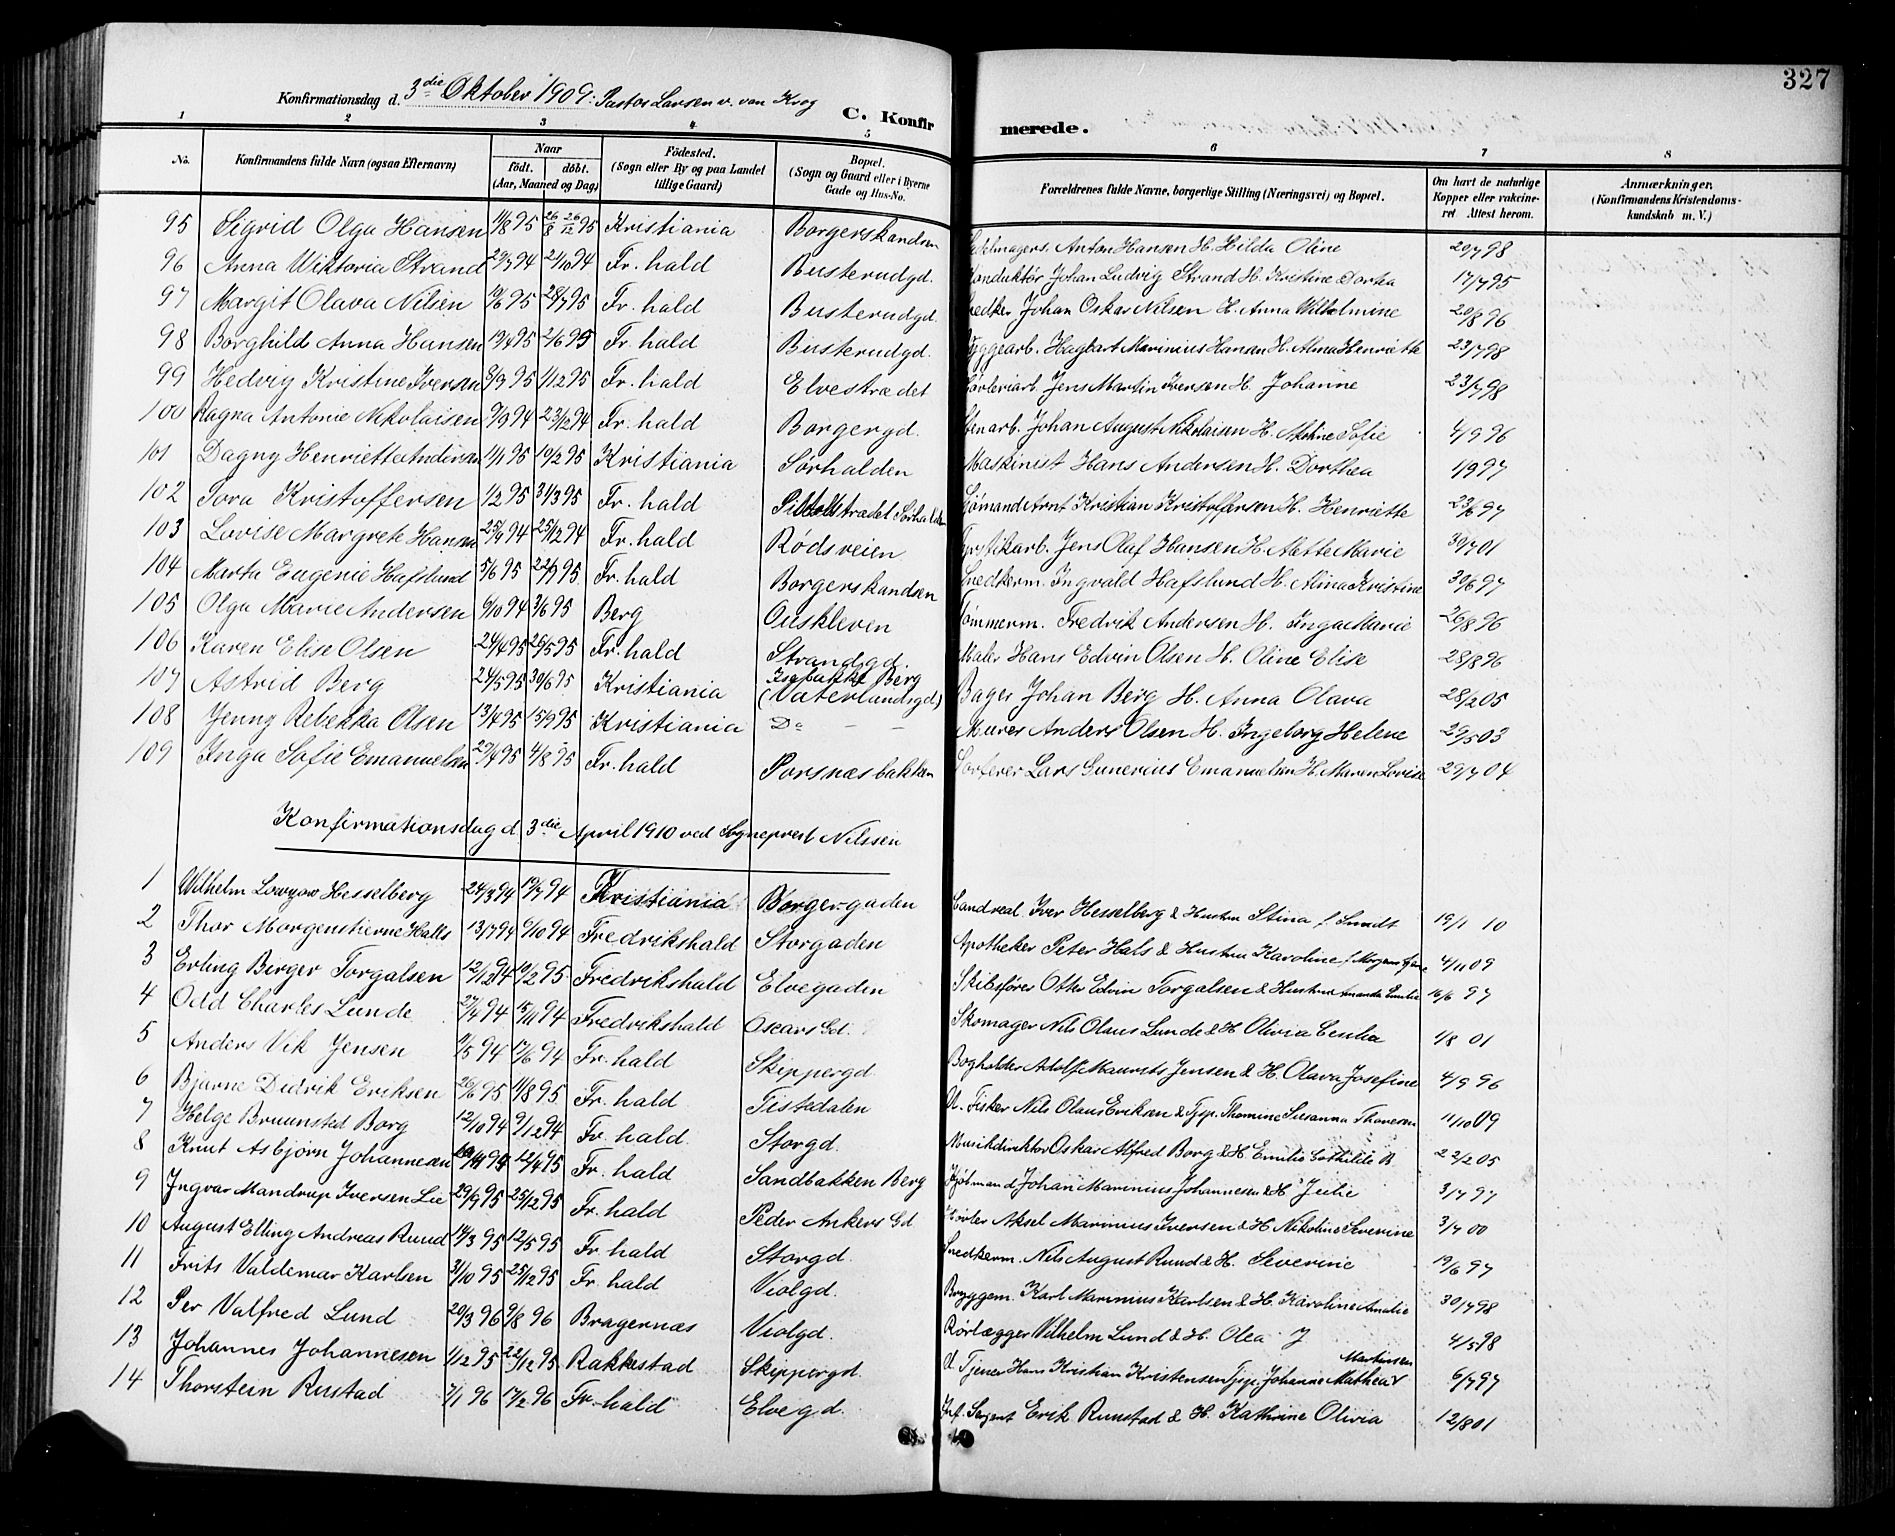 327
Konfirmationsdag d. 3die Oktober 1909: Pastor Larsen v. von Krog
C. Konfirmerede.
1 2 3 4 5 6 7 8
No. Konfirmandens fulde Navn (ogsaa Efternavn) Naar födt. döbt. (Aar, Maaned og Dag) Födested. (Sogn eller By og paa Landet tillige Gaard) Bopæl. (Sogn og Gaard eller i Byerne Gade og Hus-No. Forældrenes fulde Navne, borgerlige Stilling (Næringsvei) og Bopæl. Om havt de naturlige Kopper eller vakcineret. Attest herom. Anmærkninger. (Konfirmandens Kristendomskundskab m. V.)
95 Sigrid Olga Hansen 11/8 95 26/12 95 Kristiania Borgerskandsen Anton Hansen H. Hilda Oline 20/7 98
96 Anna Wiktoria Strand 29/3 94 21/10 94 Fr. hald Busterudgd. Konduktör Johan Ludvig Strand H. Kristine Dorthea 17/7 95
97 Margit Olava Nilsen 10/6 95 28/7 95 Fr. hald Busterudgd. Snedker Johan Oskar Nilsen H. Anna Wilhelmine 20/8 96
98 Borghild Anna Hansen 19/4 95 2/6 95 Fr. hald Busterudgd. Byggearb. Hagbart Marinius Hansen H. Alma Henriette 23/7 98
99 Hedvig Kristine Iversen 3/9 95 1/12 95 Fr. hald Elvestrædet Jens Martin Iversen H. Johanne 23/7 98
100 Ragna Antonie Nikolaisen 9/9 94 23/12 94 Fr. hald Borgergd. Stenarb. Johan August Nikolaisen H. Maline Sofie 4/9 96
101 Dagny Henriette Andersen 11/1 95 10/2 95 Kristiania Sörhalden Maskinist Hans Andersen H. Dorthea 1/9 97
102 Tora Kristoffersen 1/2 95 31/3 95 Fr. hald Sörhalden Sjömand Arnt Kristian Kristoffersen H. Henriette 23/6 97
103 Lovise Margrete Hansen 25/9 94 25/12 94 Fr. hald Rödsveien Jens Olaf Hansen H. Mette Marie 30/7 01
104 Marta Eugenie Hafslund 5/6 95 22/9 95 Fr. hald Borgerskandsen Snedkerm. Ingvald Hafslund H. Alma Kristine 30/6 97
105 Olga Marie Andersen 6/10 94 3/6 95 Berg Ouskleven Tömmerm. Fredrik Andersen H. Inga Marie 26/8 96
106 Karen Elise Olsen 24/4 95 26/5 95 Fr. hald Strandgd. Maler Hans Edvin Olsen H. Oline Elise 28/8 96
107 Astrid Berg 24/5 95 30/6 95 Kristiania Isebakke Berg (Vaterlandsgd) Bager Johan Berg H. Anna Olava 28/2 05
108 Jenny Rebekka Olsen 13/4 95 15/9 95 Kristiania Do – – Murer Anders Olsen H. Ingeborg Helene 29/5 03
109 Inga Sofie Emanuelsen 29/4 95 4/8 95 Fr. hald Porsnæsbakken Sorterer Lars Gunerius Emanuelsen H. Maren Lovise 29/7 04
Konfirmationsdag d. 3die April 1910 ved Sogneprest Nilssen
1 Wilhelm Lowzow Hesselberg 24/3 94 19/7 94 Kristiania Borgergaden Cand real Iver Hesselberg & Hustru Stina f. Smidt 19/1 10
2 Thor Morgenstierne Halls 13/7 94 6/10 94 Fredrikshald Storgaden Apotheker Peter Hals & Hustru Karoline f. Morgenstjerne 4/11 09
3 Erling Birger Torgalsen 12/12 94 10/2 95 Fredrikshald Elvegaden Skibsförer Otto Edvin Torgalsen & Hustru Amanda Emilie 16/6 97
4 Odd Charles Lunde 27/4 94 15/11 94 Fredrikshald Oscars Gd. Skomager Nils Olaus Lunde & H Olivia 1/8 01
5 Anders Vik Jensen 9/5 94 17/6 94 Fr. hald Skippergd Bogholder Adolf Maurits Jensen & H. Olava Josefine 4/9 96
6 Bjarne Didrik Eriksen 26/6 95 11/8 95 Fr. hald Tistedalen Fisker Nils Olaus Eriksen & Tjsp. Thomine Susanna Thoresen 11/10 09
7 Helge Bruunsted Borg 12/10 94 9/12 94 Fr. hald. Storgd. Musikdirektör Oskar Alfred Borg & H. Emilie B. 22/2 05
8 Knut Asbjörn Johannesen 94 12/4 95 Fr. hald Sandbakken Berg Johan Marinius Johannesen & H Julie 3/7 97
9 Ingvar Mandrup Iversen Lie 29/9 95 25/12 95 Fr. hald Peder Ankers Gd Aksel Marinius Iversen & H Nikoline Severine 3/7 00
10 August Elling Andreas Ruud 14/3 95 12/5 95 Fr. hald Storgd. Snedkerm. Nils August Ruud & H. Severine 19/6 97
11 Frits Valdemar Karlsen 31/10 95 25/12 95 Fr. hald Violgd. Bryggem. Karl Marinius Karlsen & H. Karoline Amalie 30/7 98
12 Per Valfred Lund 20/3 96 9/8 96 Bragernæs Violgd. Rörlægger Vilhelm Lund & H. Olea J 4/5 98
13 Johannes Johannesen 1/12 95 22/12 95 Rakkestad Skippergd. Tjener Hans Kristian Kristensen Tjsp. Johanne Mathea Martinsen 6/7 97
14 Thorstein Rustad 7/1 96 17/2 96 Fr. hald Elvegd. Inf. Sergent Erik Runstad & H. Kathrine Olivia 12/8 01